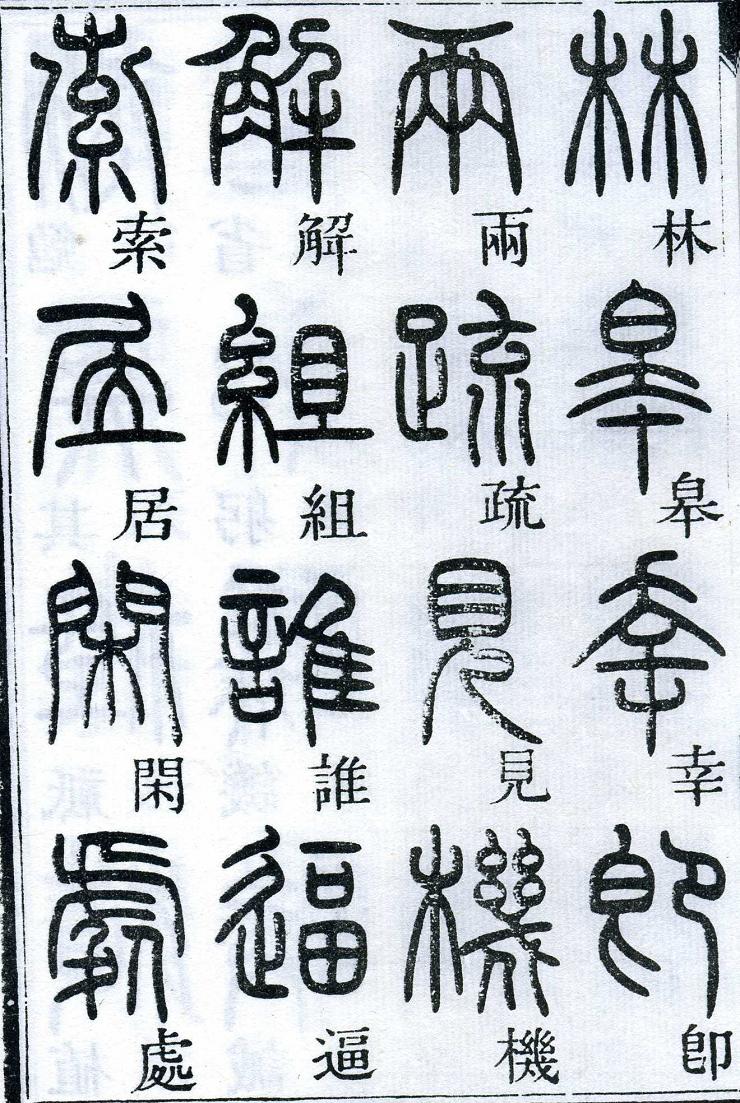 林皋幸即
兩疏見機
解組誰逼
索居閑處